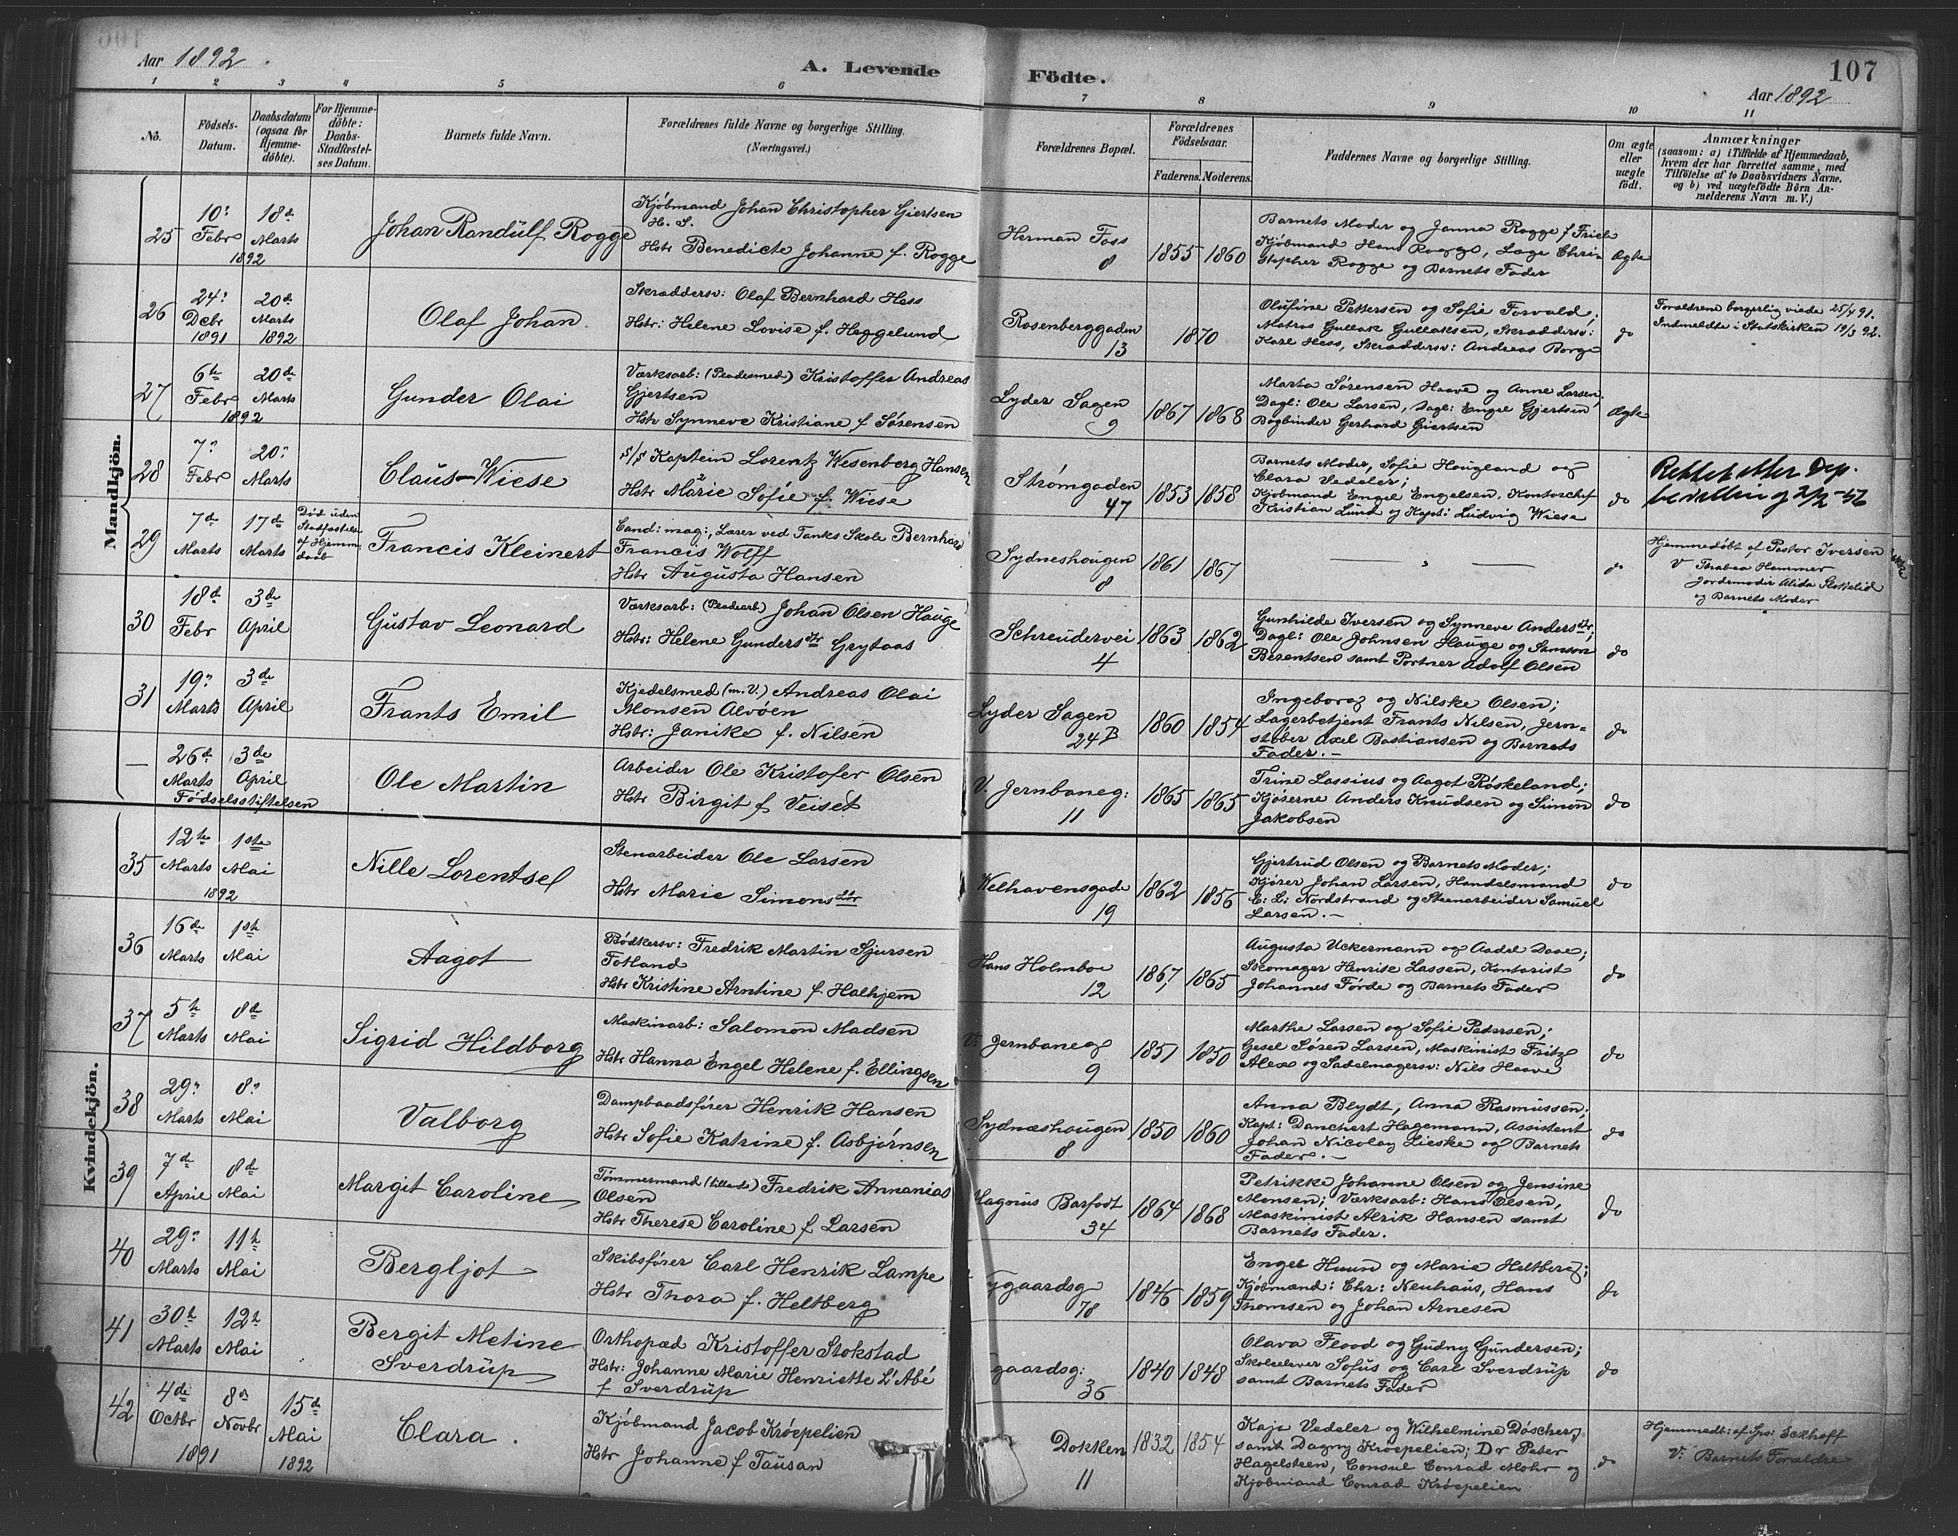 Aar 1892
A. Levende Födte.
107
Aar 1892
1 2 3 4 5 6 7 8 9 10 11
No.
Födsels-Datum.
Daabsdatum (ogsaa for Hjemme-döbte).
For Hjemme-döbte: Daabs-Stadfæstel-ses Datum.
Barnets fulde Navn.
Forældrenes fulde Navne og borgerlige Stilling. (Næringsvei.)
Forældrenes Bopæl.
Forældrenes Födselsaar.
Faderens. Moderens.
Faddernes Navne og borgerlige Stilling.
Om ægte eller uægte födt.
Anmærkninger
(saasom: a) i Tilfælde af Hjemmedaab, hvem der har forrettet samme, med Tilföielse af to Daabsvidners Navne. og b) ved uægtefödte Börn An-melderens Navn m. V.)
Mandkjön.
25
10. Febr 1892
18de Marts
Johan Randulf Rogge
Kjøbmand Johan Christopher Gjertsen
H. S.
Hstr Benedicte Johanne f. Rogge
Herman Foss 8
1855 1860
Barnets Moder og Janna Rogge f Friele
Kjøbmand Hans Rogge, Lage Chri-
stopher Rogge og Barnets Fader
Ægte
26
24. Debr 1891
20de Marts 1892
Olaf Johan
Skræddersv: Olaf Bernhard Hess
Hstr: Helene Lovise f. Heggelund
Rosenberggaden 13
1870
Olufine Pettersen og Sofie Forvald;
Matros Gullak Gullaksen, Skræddersv:
Karl Hess, Skræddersv: Andreas Borge
do
Forældrene borgerlig viede 25/4 91.
Indmeldte i Statskirken 19/3 92.
27
6te Febr 1892
20de Marts
Gunder Olai
Værksarb: (Pladesmed) Kristoffer Andreas
Gjertsen
Hstr Synneve Kristiane f Sørensen
Lyder Sagen 9
1867 1868
Marta Sørensen Haave og Anne Larsen,
Dagl: Ole Larsen, Dagl: Engel Gjertsen,
Bogbinder Gerhard Giertsen
Ægte
28
7. Febr
20. Marts
Claus-Wiese
S/S Kaptein Lorentz Wesenberg Hansen
Hstr Marie Sofie f. Wiese
Strømgaden 47
1853 1858
Barnets Moder, Sofie Hougland og
Clara Vedeler;
Kjøbmand Engel Engelsen, Kontorchef
Kristian Lund og Kapt: Ludvig Wiese
do
Rettet etter Dep.
29
7de Marts
17de Marts
Død uden Stadfæstelse af Hjemme-daab
Francis Kleinert
Cand: mag:, Lærer ved Tanks Skole Bernhard
Francis Wolff
Hstr Augusta Hansen
Sydneshougen 8
1861 1867
do
Hjemmedøbt af Pastor Iversen
V Thabea Hammer
Jordemodir Alida Slokelid
og Barnets Moder
30
18de Febr
3de April
Gustav Leonard
Værksarb: (Pladearb) Johan Olsen Hauge
Hstr: Helene Gundersdtr Grytaas
Schreudervei 4
1863 1862
Gunhilde Iversen og Synneve Andersdtr;
Dagl: Ole Johnsen Hauge og Samson
Berentsen samt Portner Adolf Olsen
do
31
19. Marts
3de April
Frants Emil
Kjedelsmed (m.V.) Andreas Olai
Monsen Alvøen
Hstr: Janike f. Nilsen
Lyder Sagen 24 B
1860 1854
Ingeborg og Nilske Olsen;
Lagerbetjent Frants Nilsen, Jern-
støber Axel Bastiansen og Barnets
Fader. —
do
—
26de Marts
3de April
Fødselsstiftelsen
Ole Martin
Arbeider Ole Kristofer Olsen
Hstr Birgit f Veiset
V. Jernbaneg: 11
1865 1865
Trine Lassius og Aagot Røskeland;
Kjøserne Anders Knudsen og Simon
Jakobsen
do
Kvindekjön.
35
12te Marts 1892
1ste Mai
Nille Lorentse
Stenarbeider Ole Larsen
Hstr Marie Simonsdtr
Welhavensgade 19
1862 1856
Gjertrud Olsen og Barnets Moder;
Kjører Johan Larsen, Handelsmand
E: L: Nordstrand og Stenarbeider Samuel
Larsen. —
do
36
16de Marts
1ste Mai
Aagot
Bødkersv: Fredrik Martin Sjursen
Fotland
Hstr Kristine Arntine f. Halhjem
Hans Holmboe 12
1867 1865
Augusta Uckermann og Aadel Daae;
Skomager Henrik Lassen, Kontorist
Johannes Førde og Barnets Fader
do
37
5te Marts
8de Mai
Sigrid Hildborg
Maskinarb: Salomon Madsen
Hstr Hanna Engel Helene f. Ellingsen
V: Jernbaneg 9
1851 1850
Marthe Larsen og Sofie Pedersen;
Gesel Søren Larsen, Maskinist Fritz
Alex og Sadelmagersv: Nils Haave
do
38
29. Marts
8. Mai
Valborg
Dampbaadsfører Henrik Hansen
Hstr Sofie Katrine f. Asbjørnsen
Sydneshougen 8
1850 1860
Anna Blydt, Anna Rasmussen;
Kapt: Danchert Hagemann, Assistent
Johan Nicolay Lieske og Barnets
Fader. —
do
39
7de April
8de Mai
Margit Caroline
Tømmermand Fredrik Annanias
Olsen
Hstr Therese Caroline f Larsen
Magnus Barfodt 34
1864 1868
Petrikke Johanne Olsen og Jensine
Monsen; Værksarb: Hans Olsen,
Maskinist Alrik Hansen samt
Barnets Fader.
do
40
29. Marts
11te Mai
Bergljot
Skibsfører Carl Henrik Lampe
Hstr Thora f. Heltberg
ygaardsg 78
1846 1859
Engel Huun og Marie Heltberg;
Kjøbmand: Chr: Neuhaus, Hans
Thomsen og Johan Arnesen
do
41
30te Marts
12te Mai
Bergit Metine
Sverdrup
Orthopæd Kristoffer Stokstad
Hstr: Johanne Marie Henriette L'Abé
f Sverdrup
gaardsg: 36
1840 1848
Olava Flood og Gudny Gundersen;
Skoleelever Sofus og Carl Sverdrup
samt Barnets Fader
do
42
4de Octbr 1891
8de Novbr
15de Mai 1892
Clara.
Kjøbmand Jacob Krøepelien
Hstr Johanne f Tausan
Dokken 11
1832 1854
Kaja Vedeler og Wilhelmine Döscher,
samt Dagny Krøepelien; Dr Peter
Hagelsteen, Consul Conrad Mohr og
Kjøbmand Conrad Krøepelien
do
Hjemmedt: af Sps: Eckhoff
V: Barnets Forældre